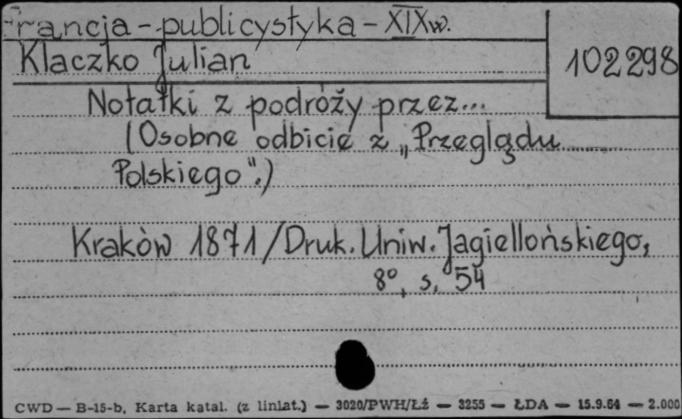 Francja - publicystyka - XIXw.
Klaczko Julian
102298
Notatki z podróży przez...
(Osobne odbicie z „Przeglądu
Polskiego".)
Kraków 1871/Druk. Uniw. Jagiellońskiego,
8°, s, 54
CWD — B-15-b, Karta katal. (z liniat.) — 3020/PWH/Łź — 3255 — ŁDA — 15.9.64 — 2.000